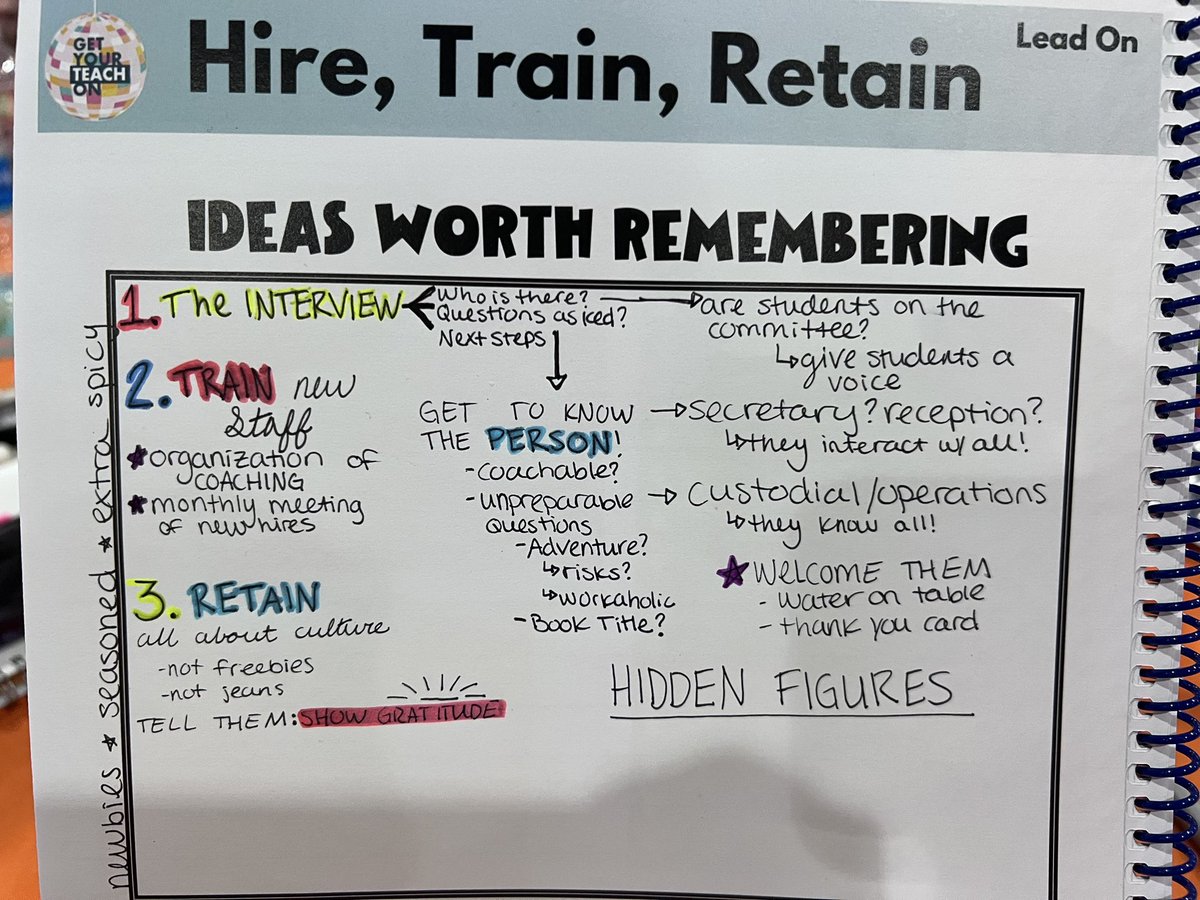 GET
YOUR
TEACH
ON
Hire, Train, Retain
Lead On
IDEAS WORTH REMEMBERING
1. The INTERVIEW
Who is there?
Questions asked?
Next steps
are students on the
committee?
↳give students a
voice
2. TRAIN new
Staff
★organization of
COACHING
★monthly meeting
of new hires
GET TO KNOW
THE PERSON!
-coachable?
-unpreparable
questions
-Adventure?
↳risks?
↳workaholic
-Book Title?
secretary? reception?
↳they interact w/ all!
custodial/operations
↳they know all!
★WELCOME THEM
- water on table
- thank you card
3. RETAIN
all about culture
-not freebies
-not jeans
TELL THEM: SHOW GRATITUDE
HIDDEN FIGURES
newbies ★ seasoned ★ extra spicy